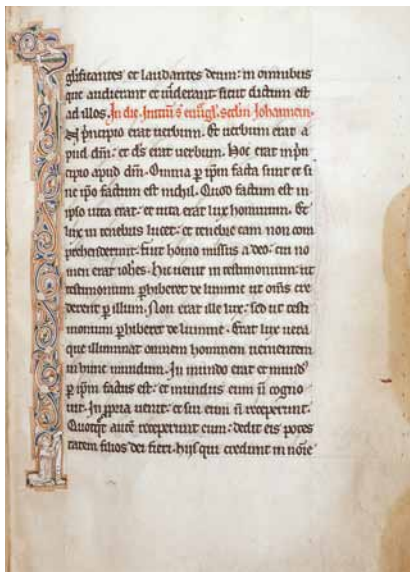 glificantes et laudantes deum: in omnibus
que audierant et viderant sicut dictum est
ad illos. In die. Initiū s̄ euāgl. scdm Johannem.
In p̄ncipio erat verbum. Et verbum erat a
pud dm̄: et ds̄ erat verbum. Hoc erat in p̄n
cipio apud dm̄. Omnia p̄ ip̄m facta sunt et si
ne ip̄o factum est nichil. Quod factum est in
ipso vita erat: et vita erat lux hominum. Et
lux in tenebris lucet: et tenebre eam non com
prehenderunt. fuit homo missus a deo: cui no
men erat ioh̄es. Hic venit in testimonium: ut
testimonium p̄hiberet de lumine ut om̄s cre
derent p̄ illum. Non erat ille lux: sed ut testi
monium p̄hiberet de lumine. Erat lux vera
que illuminat omnem hominem venientem
in hunc mundum. In mundo erat et mund᾽
p̄ ip̄m factus est: et mundus eum n̄ cogno
uit. In p̄pria venit: et sui eum n̄ receperunt.
Quotq̄t autē receperunt eum: dedit eis potes
tatem filios dei fieri. hijs qui credunt in nōie